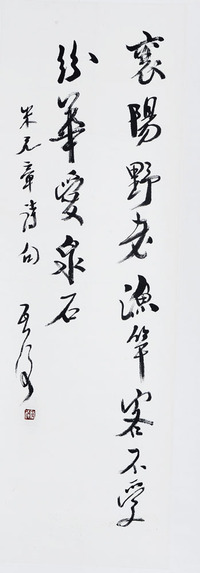 襄陽野老漁竿客不愛
紛華愛泉石
米元章詩句